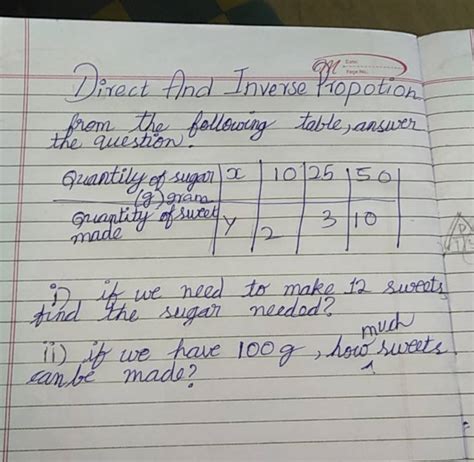 Date:
Page No.:
Direct And Inverse Propotion
from the following table, answer
the question.
Quantily of sugar x 10 25 50
(g) gram
Quantity of sweet y 2 3 10
made
i) if we need to make 12 sweets
find the sugar needed?
much
ii) if we have 100 g, how sweets
can be made?